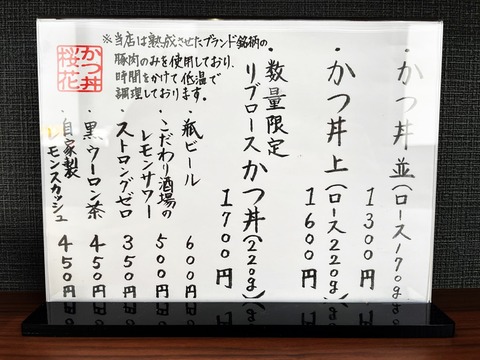 ・かつ丼 並(ロース170g)
1300円
・かつ丼 上(ロース220g)
1600円
・数量限定
リブロースかつ丼(220g)
1700円
※当店は熟成させたブランド銘柄の
豚肉のみを使用しており、
時間をかけて低温で
調理しております。
かつ丼
桜花
・瓶ビール 600円
・こだわり酒場の
レモンサワー 500円
・ストロングゼロ 350円
・黒ウーロン茶 450円
・自家製
レモンスカッシュ 450円